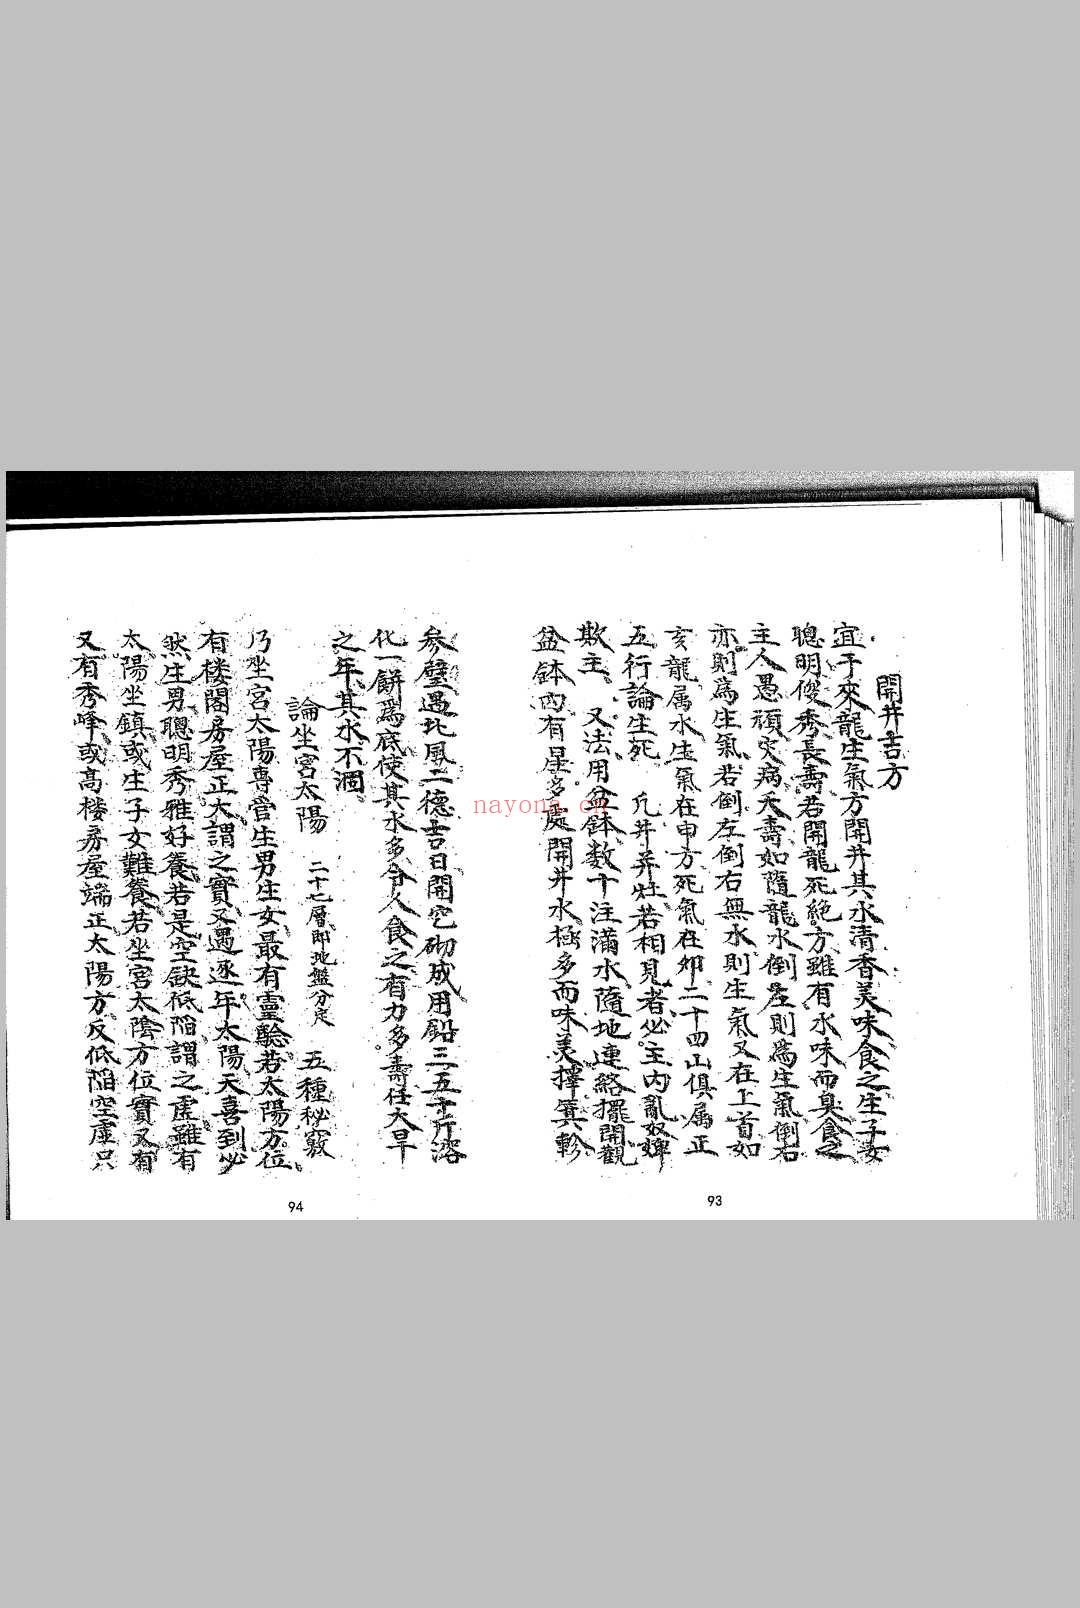 開井吉方
宜于來龍生氣方開井其水清香美味食之生子女
聰明俊秀長壽若開龍死絕方雖有水味而臭食之
主人愚頑灾病夭壽如隨龍水倒左則為生氣倒右
亦則為生氣若倒左倒右無水則生氣又在上首如
亥龍属水生氣在申方死氣在卯二十四山俱属正
五行論生死 凡井并灶若相見者必主内亂奴婢
欺主 又法用盆鉢数十注滿水隨地連絡擺開觀
盆鉢内有星多處開井水極多而味美擇箕軫
參璧遇北風二德吉日開完砌成用鉛三五十斤溶
化一餅為底使其水多令人食之有力多壽任大旱
之年其水不涸
論坐宮太陽 二十七層即地盤分定 五種秘竅
乃坐宮太陽專管生男生女最有靈驗若太陽方位
有楼閣房屋正大謂之實又遇逐年太陽天喜到必
然生男聰明秀雅好養若是空缺低陷謂之虛雖有
太陽坐鎮或生子女難養若坐宮太陰方位實又有
又有秀峰或高楼房屋端正太陽方反低陷空虛只
93
94
nayona.cn